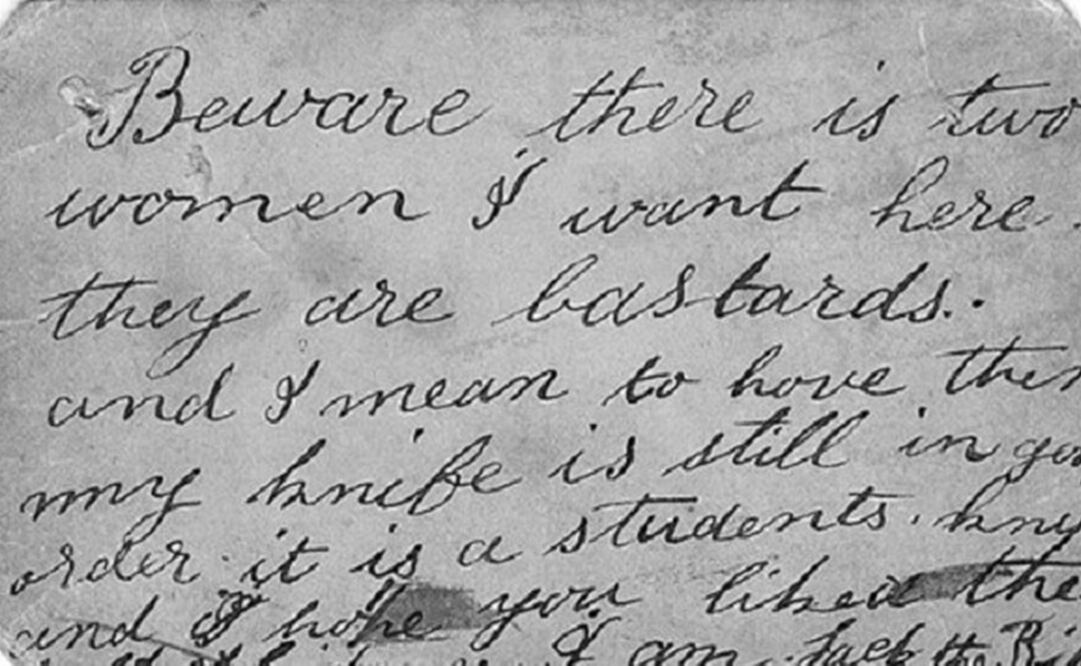 Beware there is two
women I want here
they are bastards.
and I mean to hove them
my knife is still in goo
order it is a students. kny
and I hope you liked the
I am. Jack th Ri